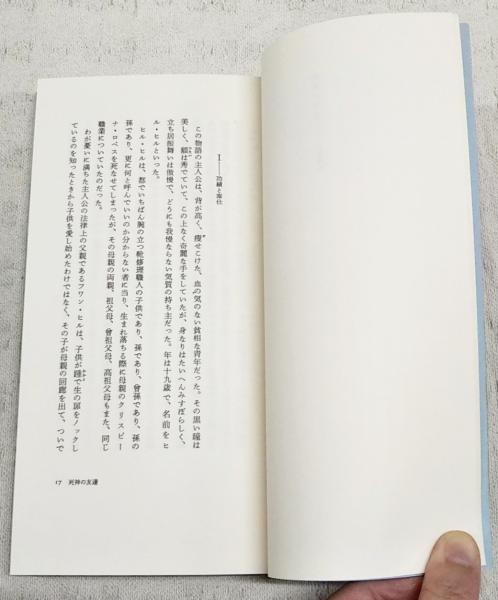 I――功績と奉仕
この物語の主人公は、背が高く、痩せこけた、血の気のない貧相な青年だった。その黒い瞳は
美しく、額は秀でていて、この上なく奇麗な手をしていたが、身なりはたいへんみすぼらしく、
立ち居振舞いは傲慢で、どうにも我慢ならない気質の持ち主だった。年は十九歳で、名前をヒ
ル・ヒルといった。
ヒル・ヒルは、都でいちばん腕の立つ靴修理職人の子供であり、孫であり、曾孫であり、孫の
孫であり、更に何と呼んでいいのか分からない者に当り、生まれ落ちる際に母親のクリスピー
ナ・ロペスを死なせてしまったが、その母親の両親、祖父母、曾祖父母、高祖父母もまた、同じ
職業についていたのだった。
わが憂いに満ちた主人公の法律上の父親であるフワン・ヒルは、子供が踵で生の扉をノックし
ているのを知ったときから子供を愛し始めたわけではなく、その子が母親の回廊を出て、ついで
17 死神の友達